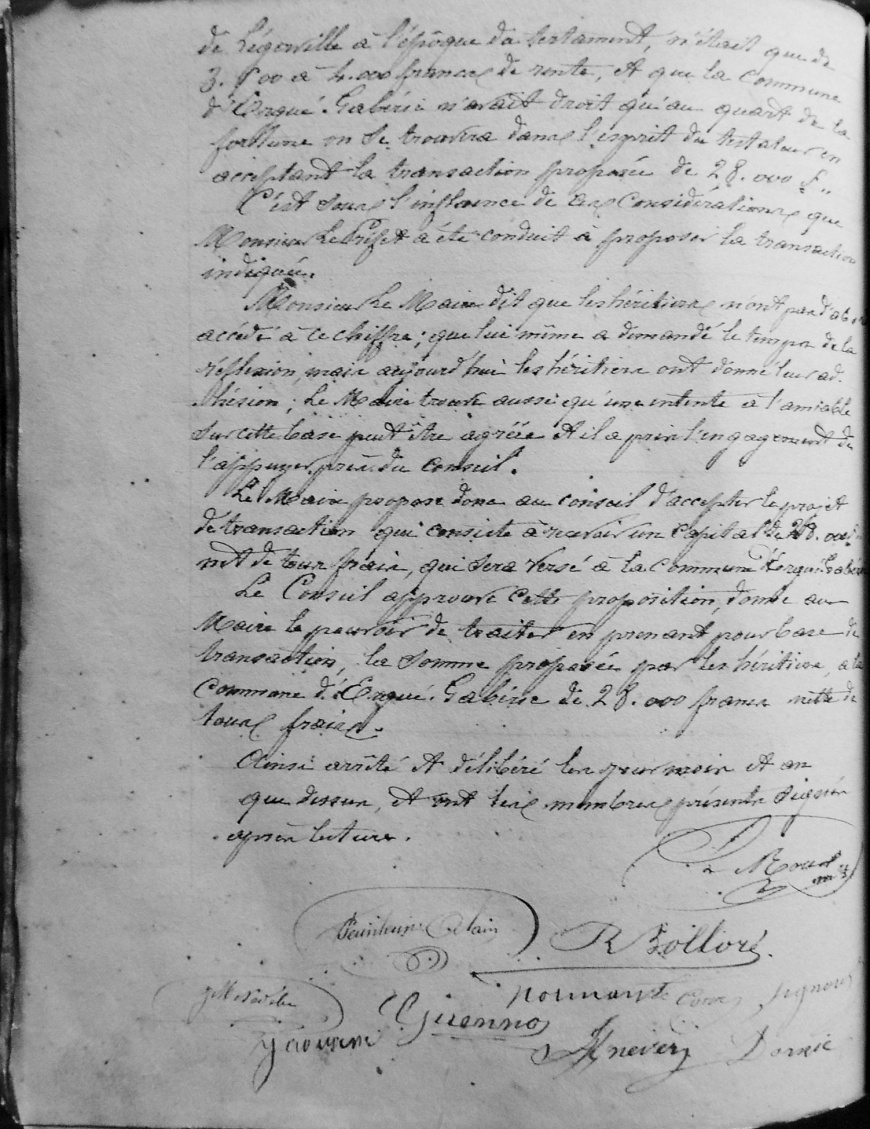 de Légerville à l'époque du testament, n'était que de
3.500 à 4.000 francs de rente, et que la commune
d'Ergué-Gabéric n'avait droit qu'au quart de la
fortune on se trouvera dans l'esprit du testateur en
acceptant la transaction proposée de 28.000 f..
C'est sous l'influence de ces considérations que
Monsieur le Préfet a été conduit à proposer la transaction
indiquée.
Monsieur Le Maire dit que les héritiers n'ont pas d'abord
accédé à ce chiffre; que lui même a demandé le temps de la
réflexion, mais aujourd'hui les héritiers ont donné leur ad-
hésion; Le Maire trouve aussi qu'une entente à l'amiable
sur cette base peut être agréée et il a pris l'engagement de
l'appuyer près du conseil.
Le Maire propose donc au conseil d'accepter le projet
de transaction qui consiste à recevoir un capital de 28.000 f
net de tous frais, qui sera versé à la commune d'Ergué-Gabéric
Le Conseil approuve cette proposition, donne au
Maire le pouvoir de traiter en prenant pour base de
transaction, la somme proposée par les héritiers, à la
commune d'Ergué-Gabéric de 28.000 francs nette de
tous frais.
Ainsi arrêté et délibéré les jour mois et an
que dessus, et ont les membres présents signés
après lecture.
R Bolloré
Guennou